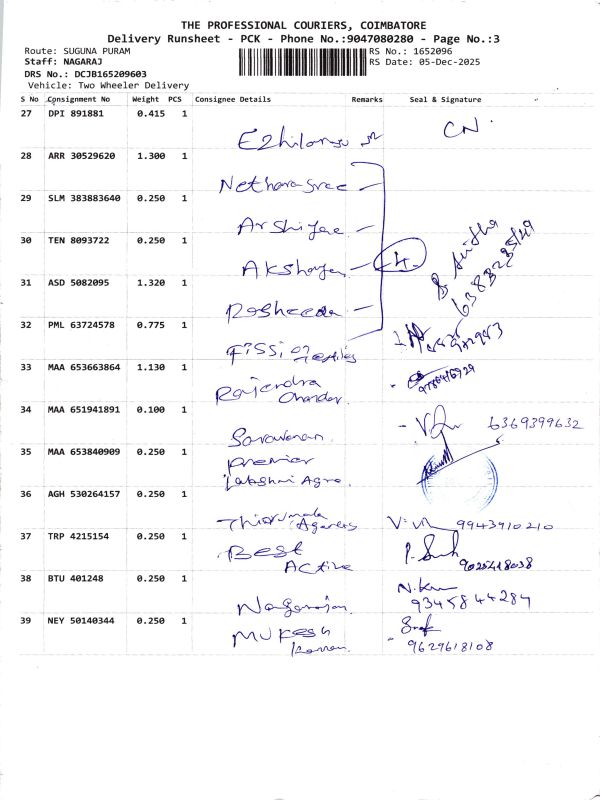 THE PROFESSIONAL COURIERS, COIMBATORE
Delivery Runsheet - PCK - Phone No.:9047080280 - Page No.:3
Route: SUGUNA PURAM RS No.: 1652096
Staff: NAGARAJ RS Date: 05-Dec-2025
DRS No.: DCJB165209603
Vehicle: Two Wheeler Delivery
S No Consignment No Weight PCS Consignee Details Remarks Seal & Signature
27 DPI 891881 0.415 1
CN.
28 ARR 30529620 1.300 1
Nethra Sree
29 SLM 383883640 0.250 1
30 TEN 8093722 0.250 1
4.
31 ASD 5082095 1.320 1
Rasheeda
32 PML 63724578 0.775 1
33 MAA 653663864 1.130 1
Rajendra
Chandar.
34 MAA 651941891 0.100 1
6369399632
Saravanan.
35 MAA 653840909 0.250 1
Premier
Lakshmi Agro.
36 AGH 530264157 0.250 1
Thirumala
Agarees
9943910210
37 TRP 4215154 0.250 1
Best
Active
9025418038
38 BTU 401248 0.250 1
Nagarajan. 9345844284
39 NEY 50140344 0.250 1
Mukesh
9629618108